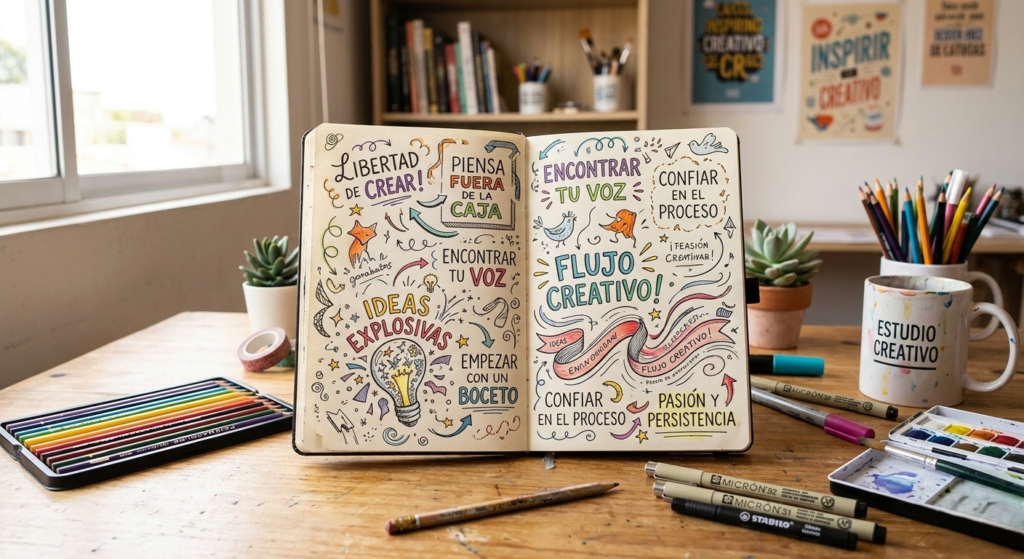 LIBERTAD
DE CREAR!
PIENSA
FUERA
DE LA
CAJA
garabatos
ENCONTRAR
TU VOZ
IDEAS
EXPLOSIVAS
EMPEZAR
CON UN
BOCETO
ENCONTRAR
TU VOZ
CONFIAR
EN EL
PROCESO
¡FEASIÓN
CREATIVAR!
FLUJO
CREATIVO!
IDEAS
FLUJO CREATIVO!
CONFIAR
EN EL PROCESO
PASIÓN Y
PERSISTENCIA
INSPIRIR
CREATIVO
CREATIVO
ESTUDIO
CREATIVO
MICRÓN
MICRÓN
STABILO